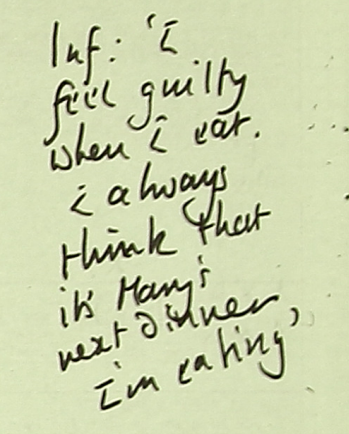 Inf: 'I
feel guilty
when i eat.
i always
think that
it's Mary's
next dinner
I'm eating'